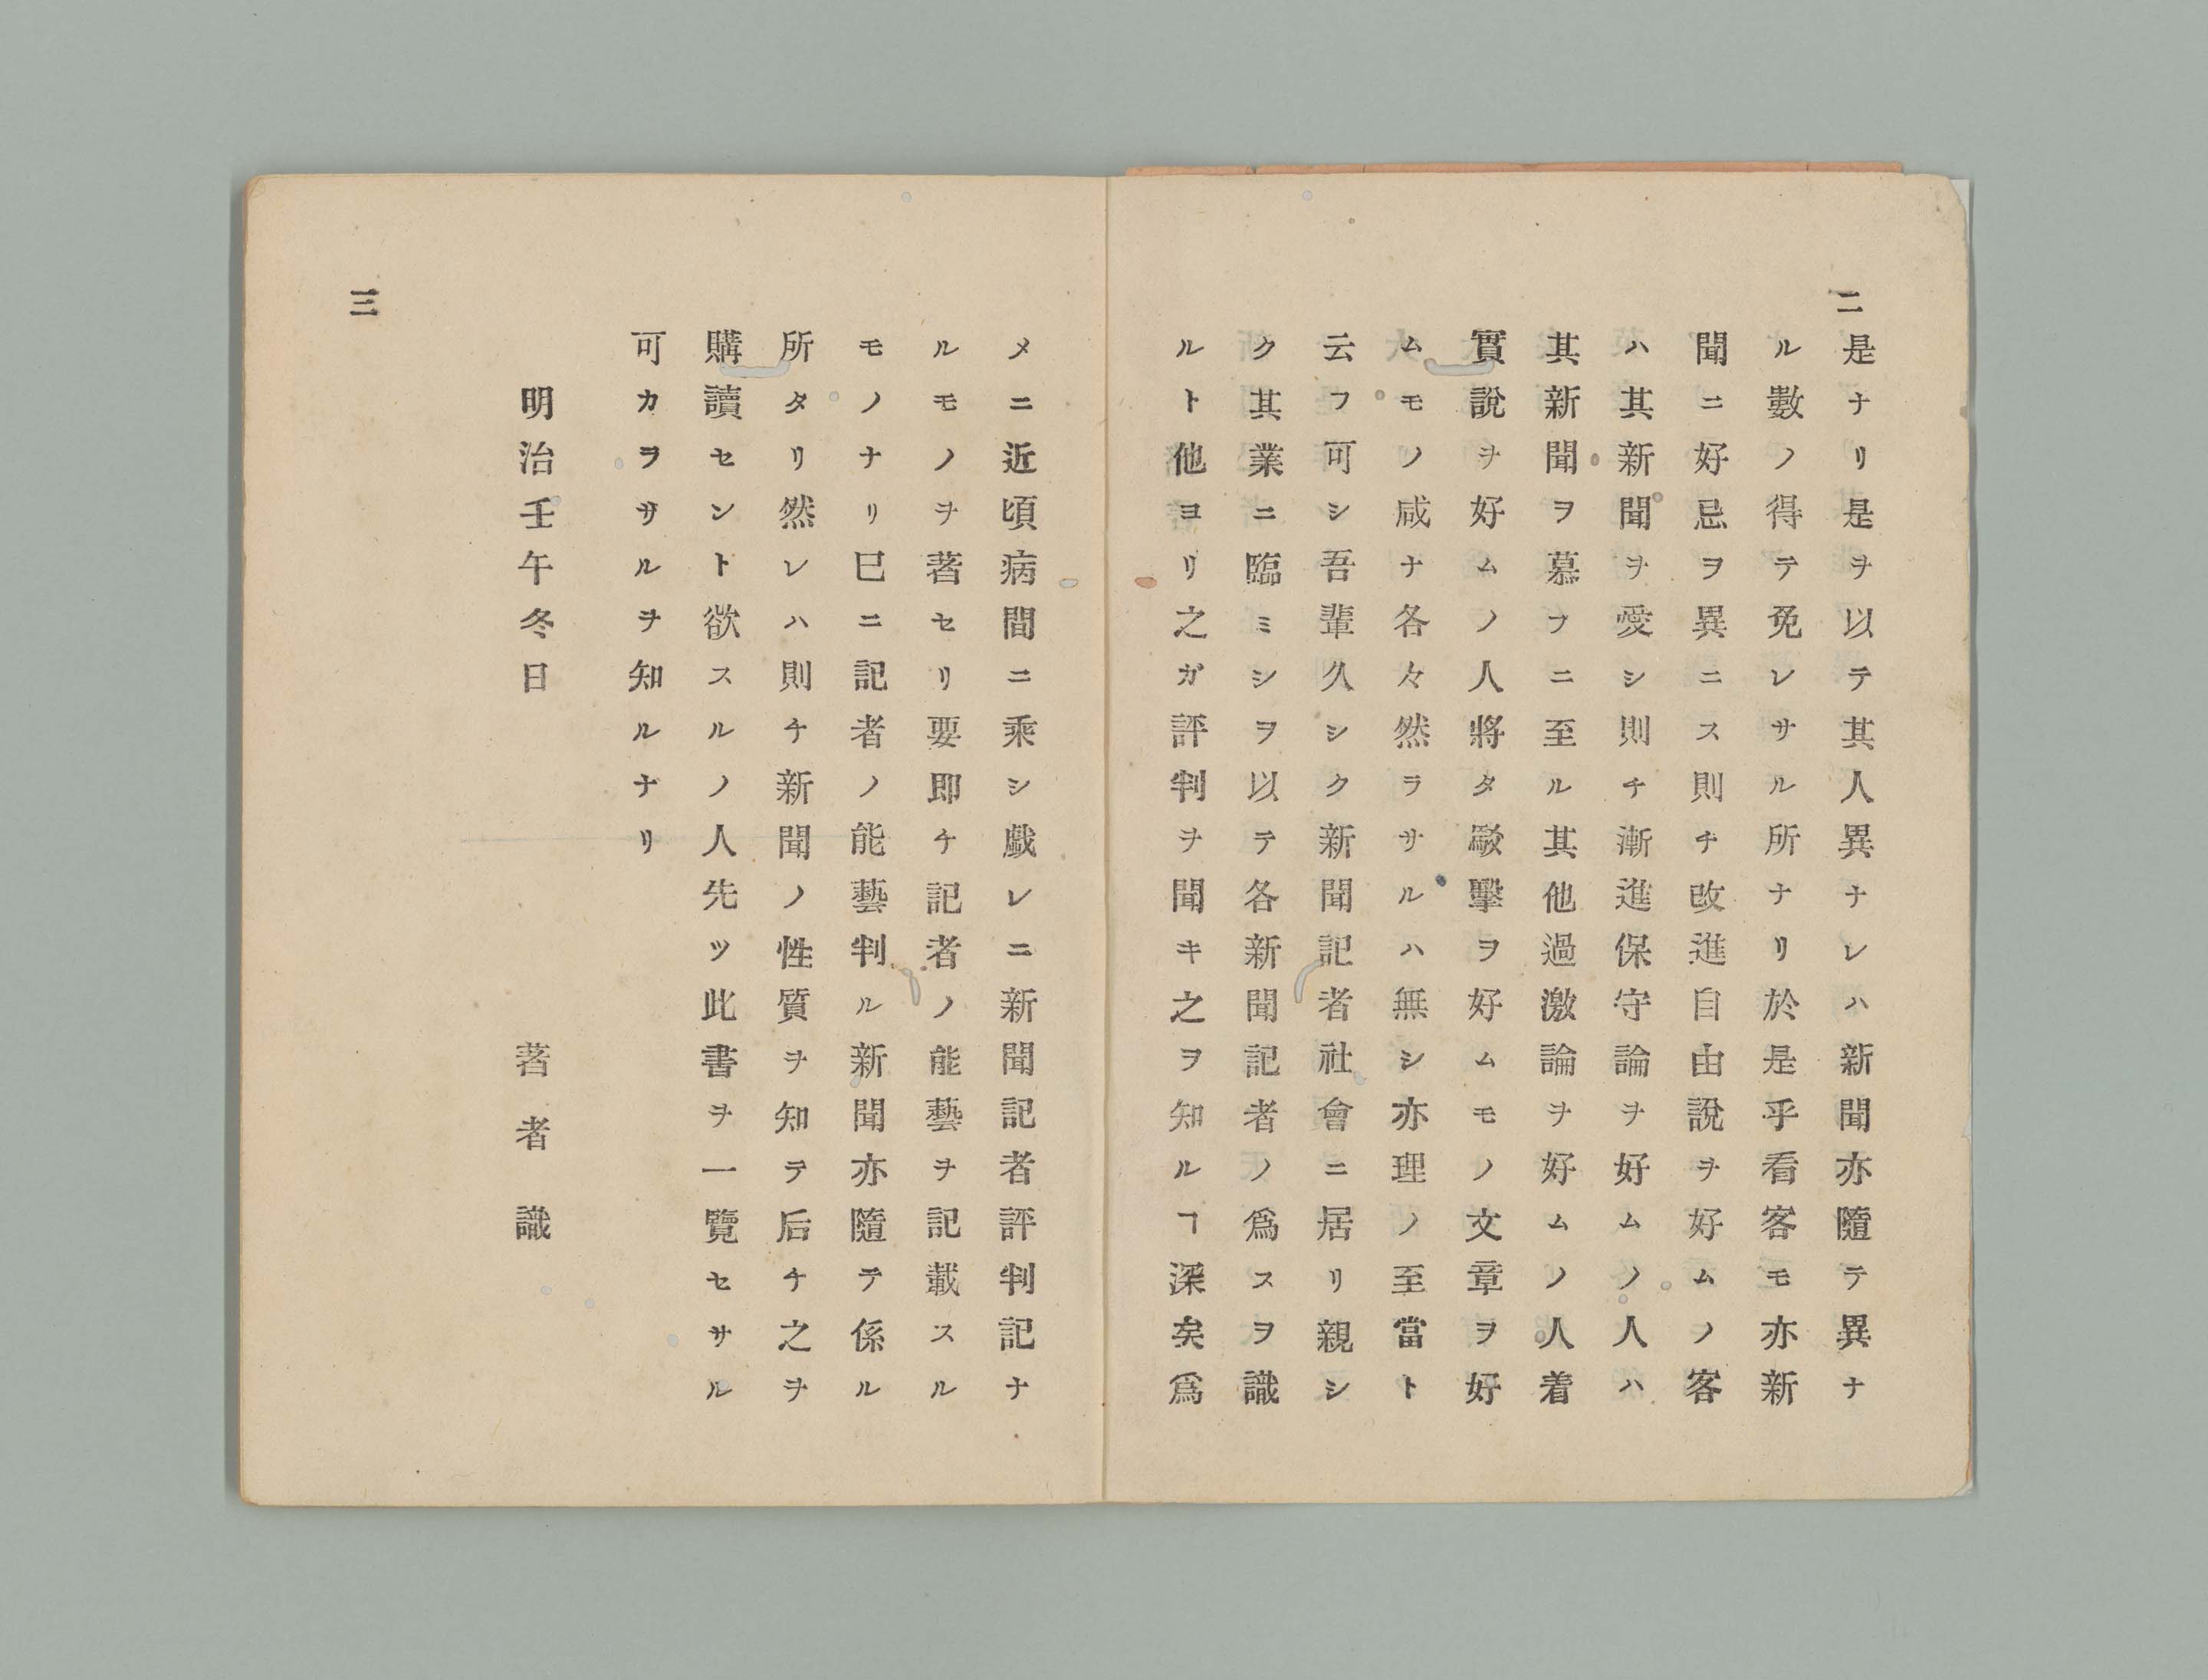 二
是ナリ是ヲ以テ其人異ナレハ新聞亦隨テ異ナ
ル數ノ得テ免レサル所ナリ於是乎看客モ亦新
聞ニ好忌ヲ異ニス則チ改進自由說ヲ好ムノ客
ハ其新聞ヲ愛シ則チ漸進保守論ヲ好ムノ人ハ
其新聞ヲ慕フニ至ル其他過激論ヲ好ムノ人着
實說ヲ好ムノ人將タ毆擊ヲ好ムモノ文章ヲ好
ムモノ咸ナ各々然ラサルハ無シ亦理ノ至當ト
云フ可シ吾輩久シク新聞記者社會ニ居リ親シ
ク其業ニ臨ミシヲ以テ各新聞記者ノ爲スヲ識
ルト他ヨリ之ガ評判ヲ聞キ之ヲ知ルヿ深矣爲
メニ近頃病間ニ乘シ戲レニ新聞記者評判記ナ
ルモノヲ著セリ要即チ記者ノ能藝ヲ記載スル
モノナリ巳ニ記者ノ能藝判ル新聞亦隨テ係ル
所タリ然レハ則チ新聞ノ性質ヲ知テ后チ之ヲ
購讀セント欲スルノ人先ツ此書ヲ一覽セサル
可カラサルヲ知ルナリ
明治壬午冬日
著者識
三